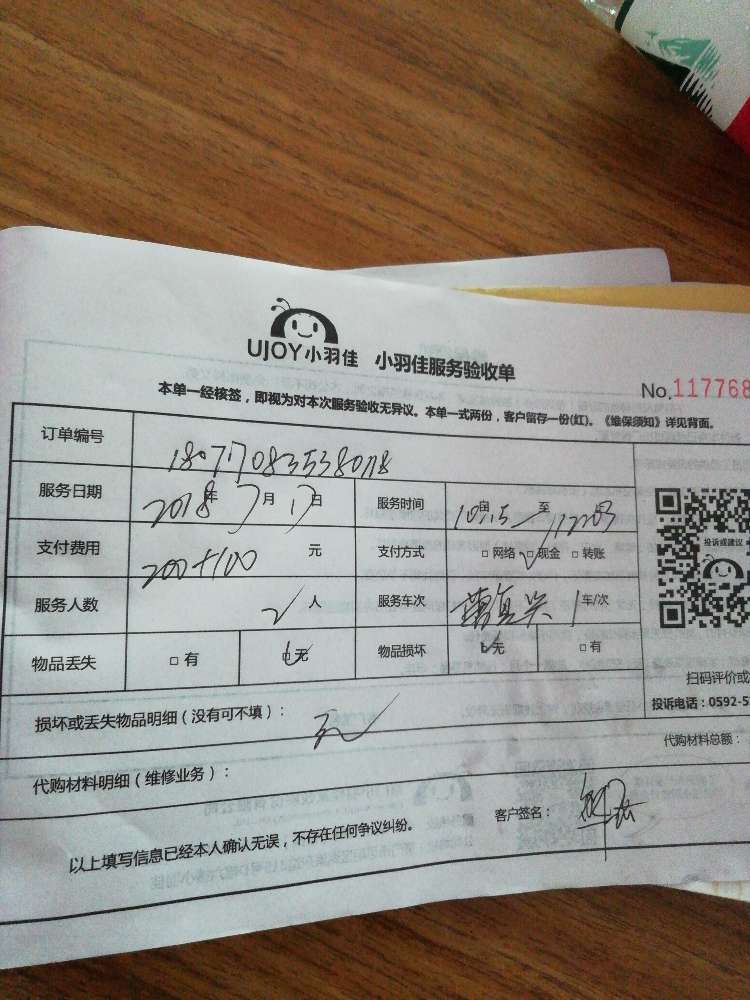 UJOY小羽佳 小羽佳服务验收单
No.117768
本单一经核签，即视为对本次服务验收无异议。本单一式两份，客户留存一份(红)。《维保须知》详见背面。
订单编号
服务日期 2018年7月17日 服务时间 10:15至12:03
支付费用 200+100元 支付方式 □网络 □现金 □转账
服务人数 2人 服务车次 1车/次
物品丢失 □有 □无 物品损坏 □无 □有
投诉或建议
扫码评价或
投诉电话：0592-5
损坏或丢失物品明细（没有可不填）： 无
代购材料明细（维修业务）： 代购材料总额：
以上填写信息已经本人确认无误，不存在任何争议纠纷。 客户签名：